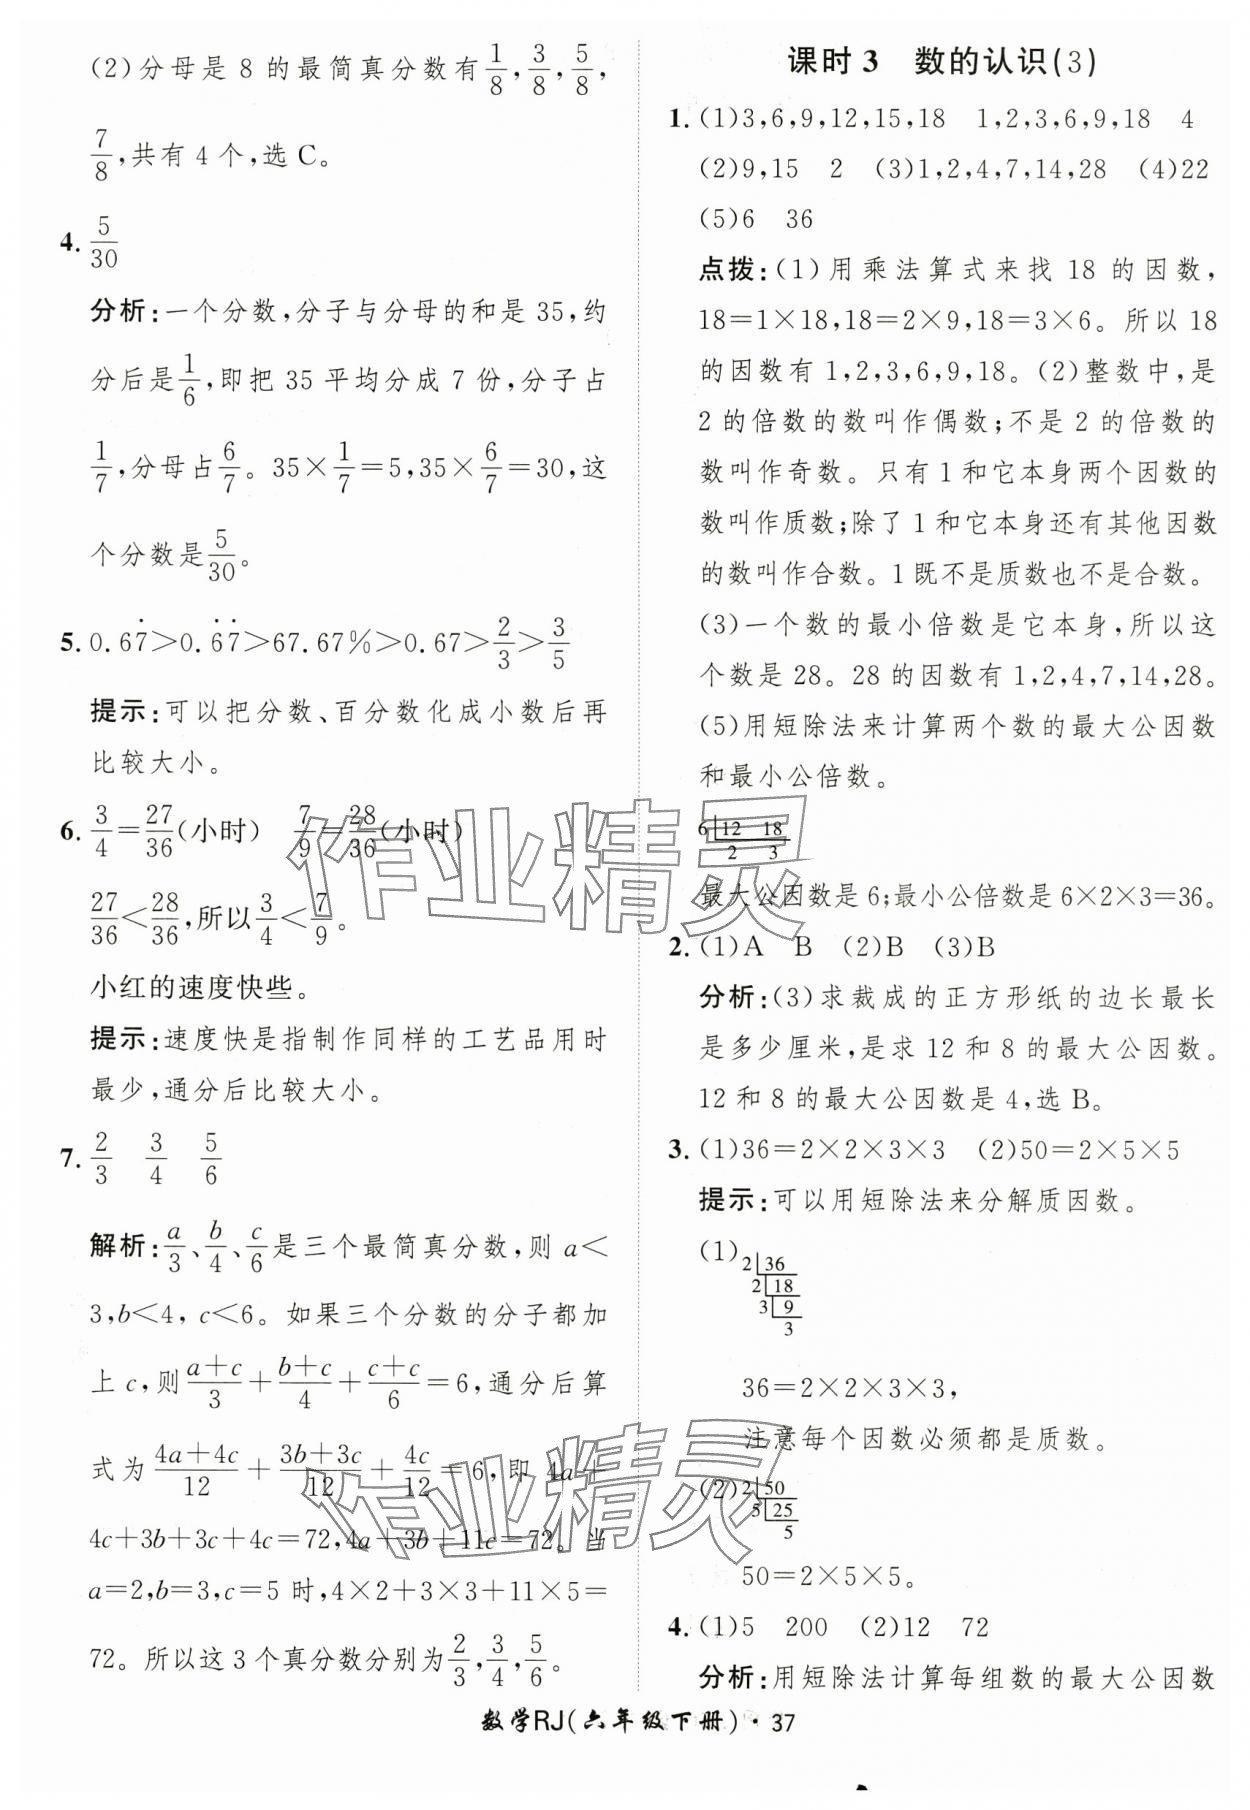 (2)分母是 8 的最简真分数有1/8,3/8,5/8,
7/8,共有 4 个,选 C。
4. 5/30
分析:一个分数,分子与分母的和是 35,约
分后是1/6,即把 35 平均分成 7 份,分子占
1/7,分母占6/7。35×1/7=5,35×6/7=30,这
个分数是5/30。
5. 0.67̇>0.6̇7̇>67.67%>0.67>2/3>3/5
提示:可以把分数、百分数化成小数后再
比较大小。
6. 3/4=27/36(小时) 7/9=28/36(小时)
27/36<28/36,所以3/4<7/9。
小红的速度快些。
提示:速度快是指制作同样的工艺品用时
最少,通分后比较大小。
7. 2/3 3/4 5/6
解析:a/3、b/4、c/6是三个最简真分数,则 a<
3,b<4, c<6。如果三个分数的分子都加
上 c,则(a+c)/3+(b+c)/4+(c+c)/6=6,通分后算
式为(4a+4c)/12+(3b+3c)/12+4c/12=6,即 4a+
4c+3b+3c+4c=72,4a+3b+11c=72。当
a=2,b=3,c=5 时,4×2+3×3+11×5=
72。所以这 3 个真分数分别为2/3,3/4,5/6。
课时 3 数的认识(3)
1. (1)3,6,9,12,15,18 1,2,3,6,9,18 4
(2)9,15 2 (3)1,2,4,7,14,28 (4)22
(5)6 36
点拨:(1)用乘法算式来找 18 的因数,
18=1×18,18=2×9,18=3×6。所以 18
的因数有 1,2,3,6,9,18。(2)整数中,是
2 的倍数的数叫作偶数;不是 2 的倍数的
数叫作奇数。只有 1 和它本身两个因数的
数叫作质数;除了 1 和它本身还有其他因数
的数叫作合数。1 既不是质数也不是合数。
(3)一个数的最小倍数是它本身,所以这
个数是 28。28 的因数有 1,2,4,7,14,28。
(5)用短除法来计算两个数的最大公因数
和最小公倍数。
6 12 18
2 3
最大公因数是 6;最小公倍数是 6×2×3=36。
2. (1)A B (2)B (3)B
分析:(3)求裁成的正方形纸的边长最长
是多少厘米,是求 12 和 8 的最大公因数。
12 和 8 的最大公因数是 4,选 B。
3. (1)36=2×2×3×3 (2)50=2×5×5
提示:可以用短除法来分解质因数。
(1) 2 36
2 18
3 9
3
36=2×2×3×3,
注意每个因数必须都是质数。
(2) 2 50
5 25
5
50=2×5×5。
4. (1)5 200 (2)12 72
分析:用短除法计算每组数的最大公因数
数学RJ(六年级下册)· 37
作业精灵
作业精灵